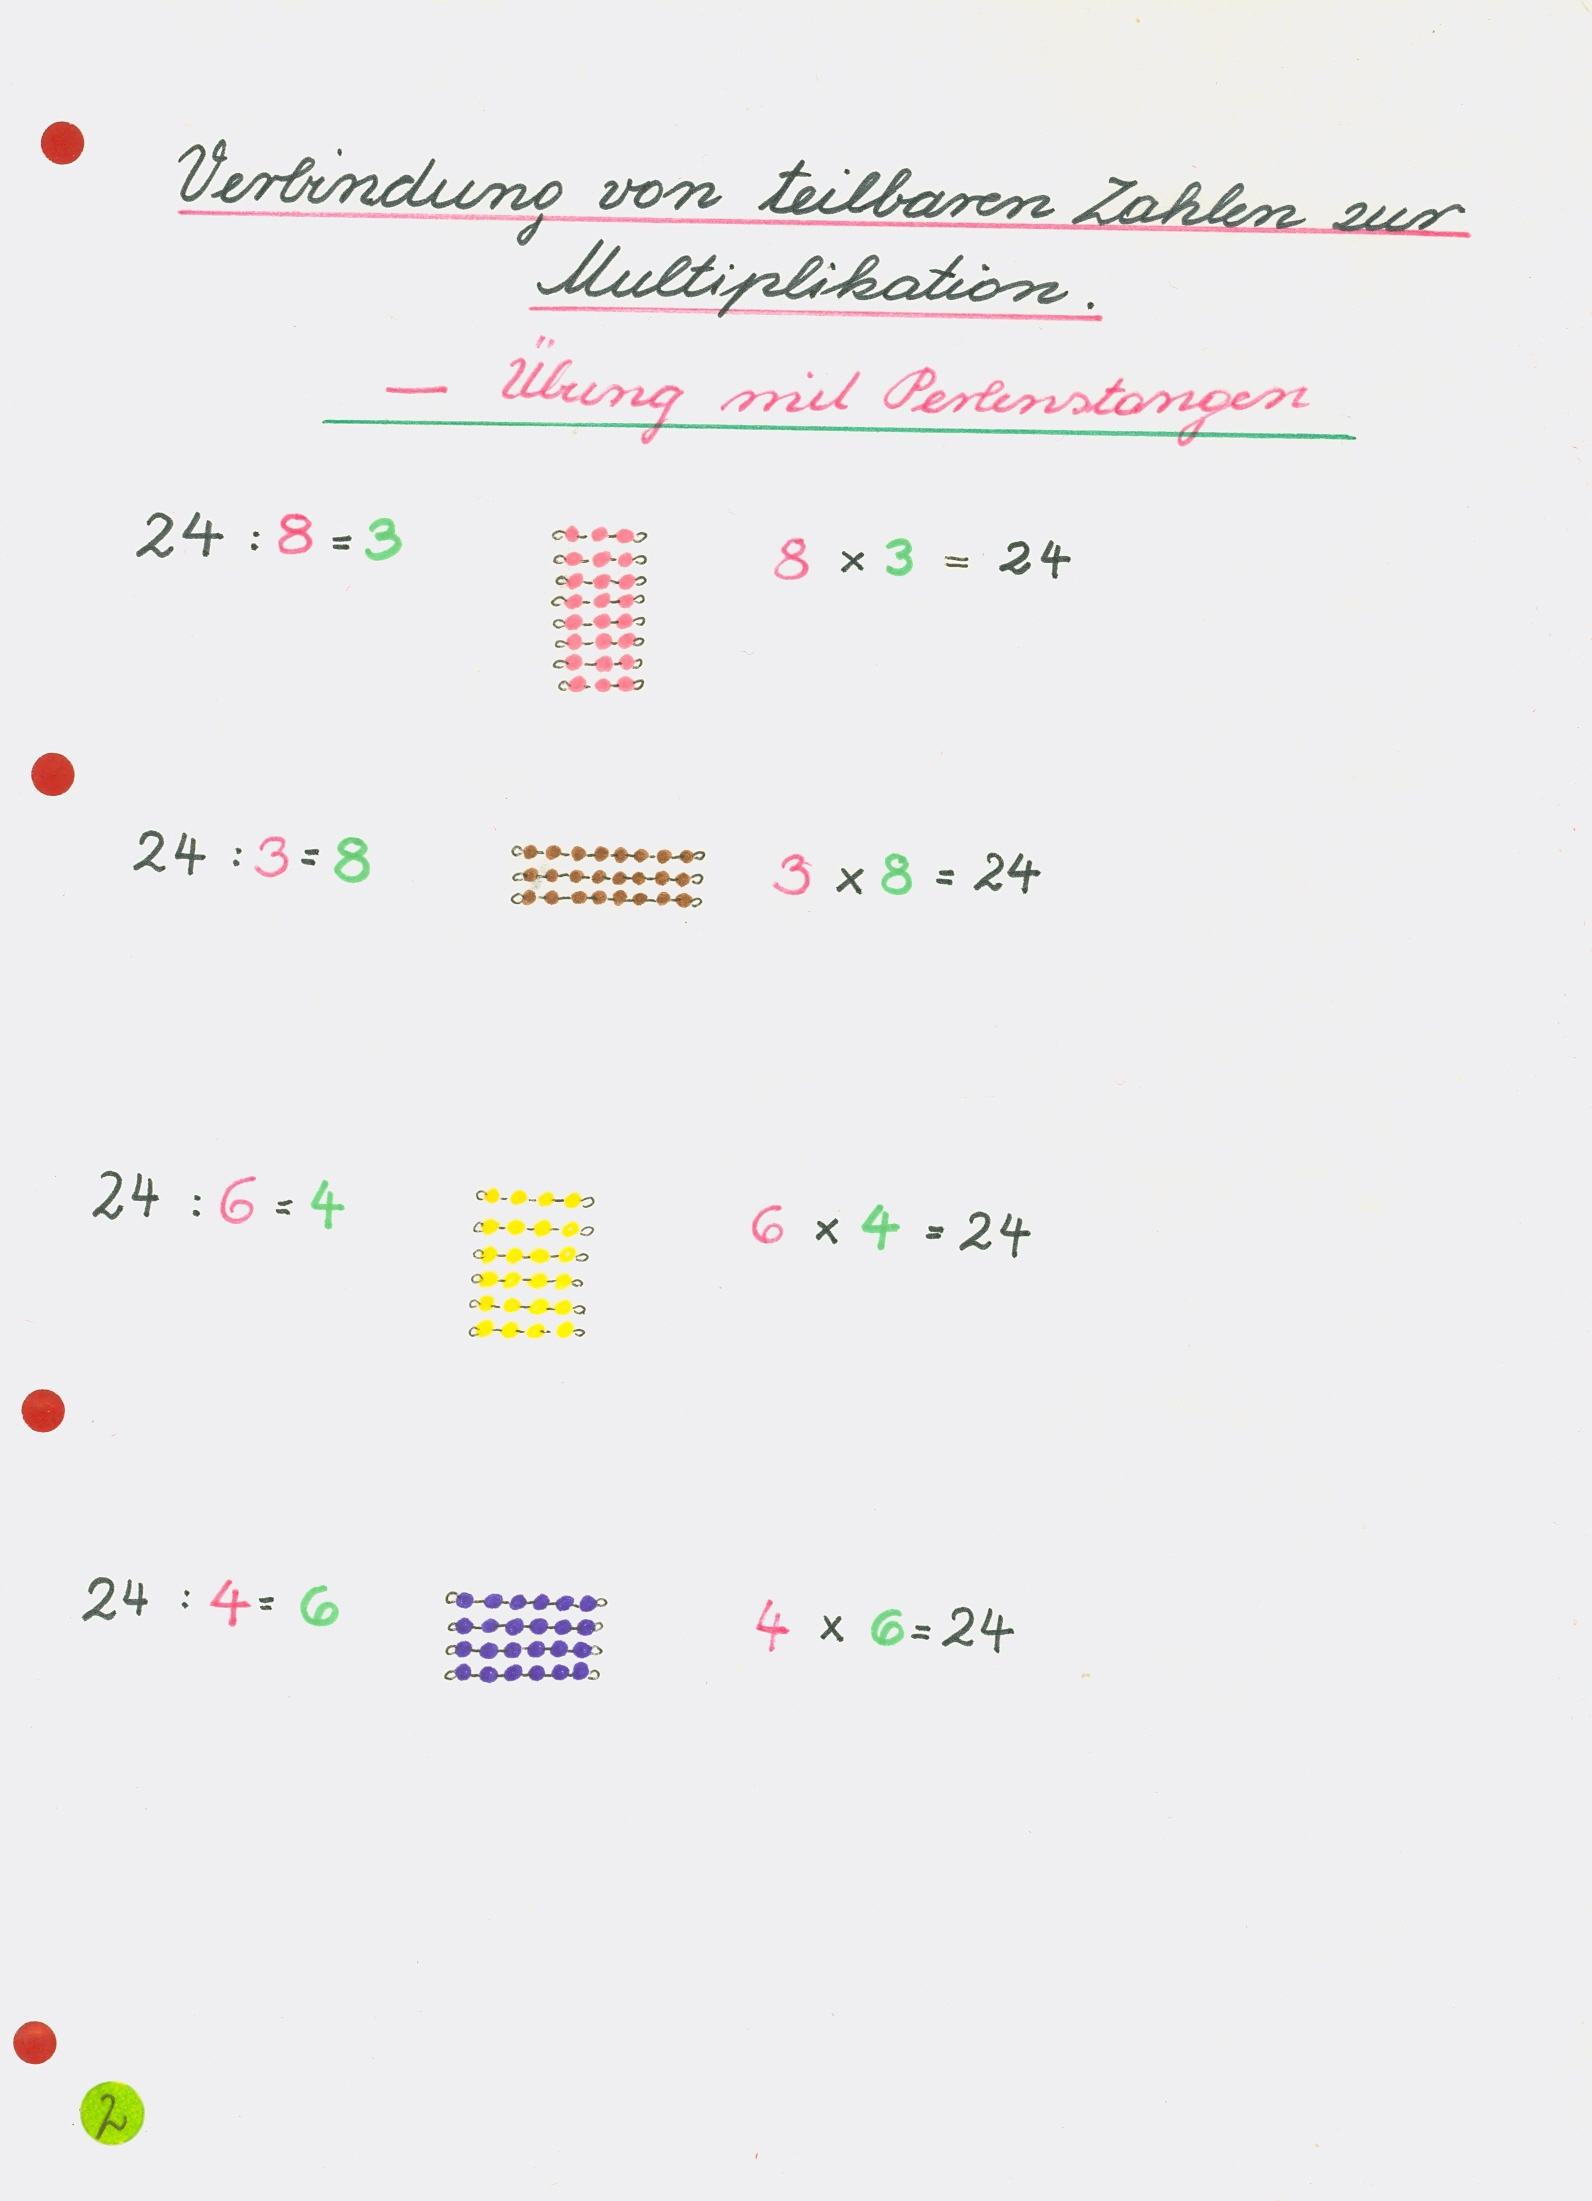 Verbindung von teilbaren Zahlen zur
Multiplikation.
— Übung mit Perlenstangen
24 : 8 = 3 8 × 3 = 24
24 : 3 = 8 3 × 8 = 24
24 : 6 = 4 6 × 4 = 24
24 : 4 = 6 4 × 6 = 24
2